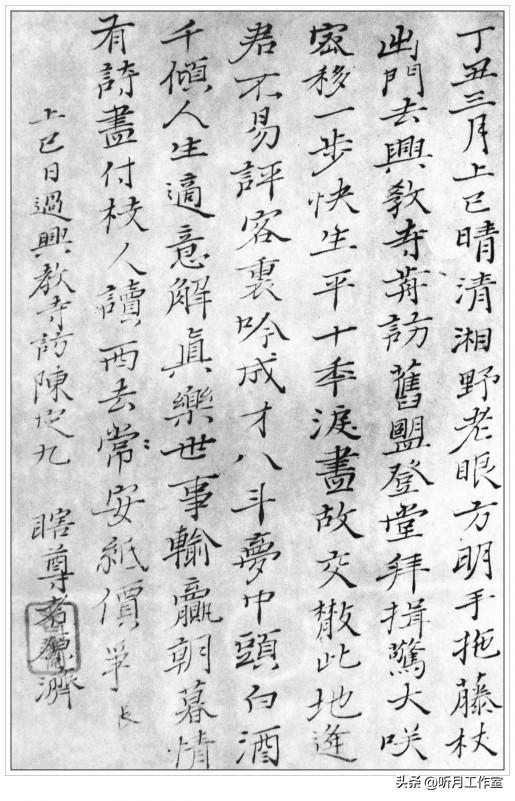 丁丑三月上巳晴清湘野老眼方明手拖藤杖
出門去興教寺前訪舊盟登堂拜揖驚大咲
宻移一步快生平十年淚盡故交散此地逢
君不易評客裏吟成才八斗夢中頭白酒
千傾人生適意解眞樂世事輸贏朝暮情
有詩盡付枝人讀西去常安紙價爭長
上巳日過興教寺訪陳定九 瞎尊者濟
头条 @听月工作室